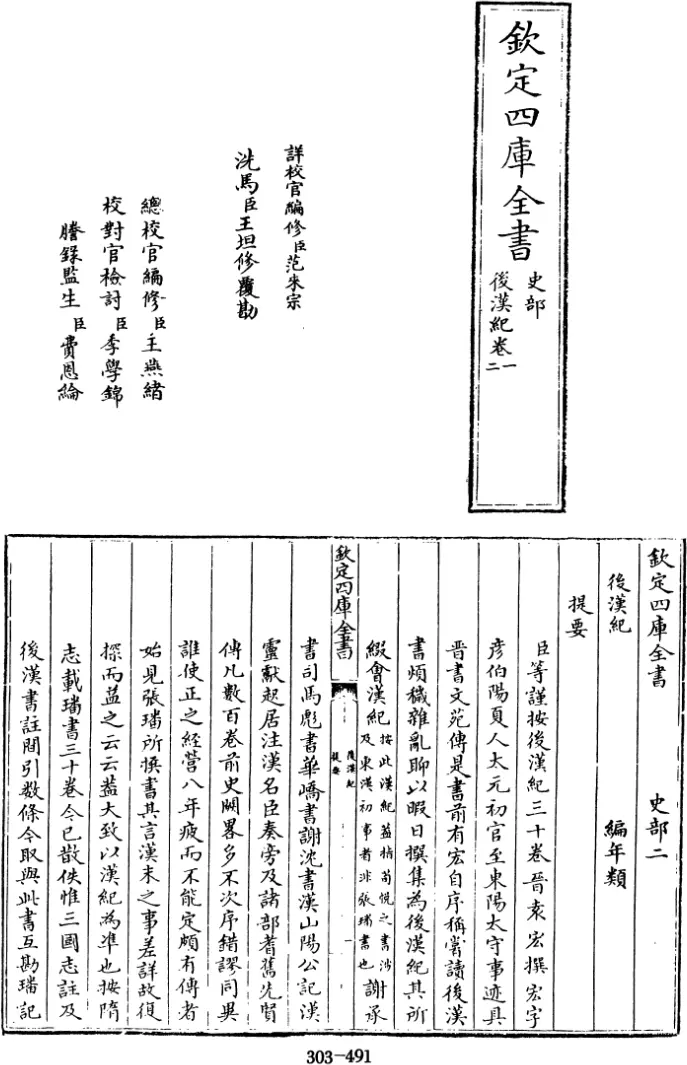 欽定四庫全書
史部
後漢紀卷一
二
詳校官編修臣范来宗
洗馬臣王坦修覆勘
總校官編修臣王燕緒
校對官檢討臣季學錦
謄錄監生臣費恩綸
欽定四庫全書 史部二
後漢紀 編年類
提要
臣等謹按後漢紀三十卷晉袁宏撰宏字
彦伯陽夏人太元初官至東陽太守事迹具
晉書文苑傳是書前有宏自序稱嘗讀後漢
書煩穢雜亂聊以暇日撰集為後漢紀其所
綴會漢紀按此漢紀葢指荀悦之書涉及東漢初事者非張璠書也謝承
欽定四庫全書
後漢紀
提要
一
書司馬彪書華嶠書謝沈書漢山陽公記漢
靈獻起居注漢名臣奏旁及諸部耆舊先賢
傳凡數百卷前史闕畧多不次序錯謬同異
誰使正之經營八年疲而不能定頗有傳者
始見張璠所撰書其言漢末之事差詳故復
探而益之云云葢大致以漢紀為準也按隋
志載璠書三十卷今已散佚惟三國志註及
後漢書註間引數條今取與此書互勘璠記
303-491